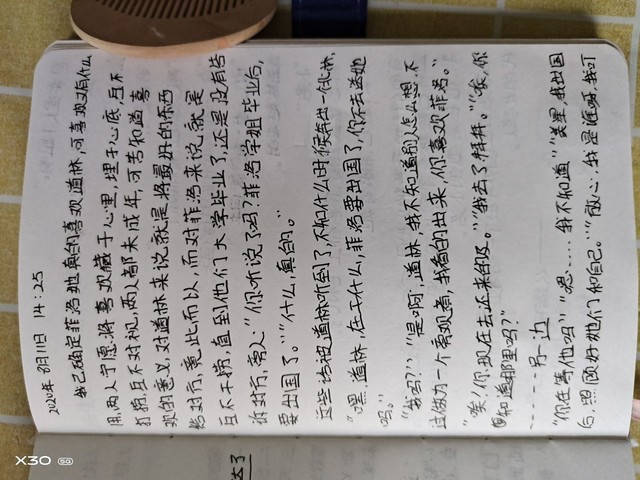 2020年 8月11日 14:25
我已确定菲洛她真的喜欢道林,可喜欢又有什么
用,两人宁愿将喜欢藏于心里,埋于心底,互不
打扰,互不对视,两人都未成年,可告知道喜
欢的意义,对道林来说就是将最好的东西
给对方,竟此而以,而对菲洛来说,就是
互不干扰,直到他们大学毕业了,还是没有告
诉对方,旁人“你听说了吗?菲洛学姐毕业后,
要出国了。”“什么,真的。”
这些话被道林听到了,不知什么时候奔出一伙林,
“嘿,道林,在干什么,菲洛要出国了,你不去送她
吗。”
“我吗?”“是啊,道林,我不知道别人怎么想,不
过做为一个旁观者,我看的出来,你喜欢菲洛。”
“唉!你现在去还来的及。”“我去了拜拜。”“唉,你
知道那里吗?”
……另一边
“你在等他吗”“嗯……我不知道”“美里,我出国
后,照顾好她们和自己。”“放心,我是谁呀,我可
达了
X30